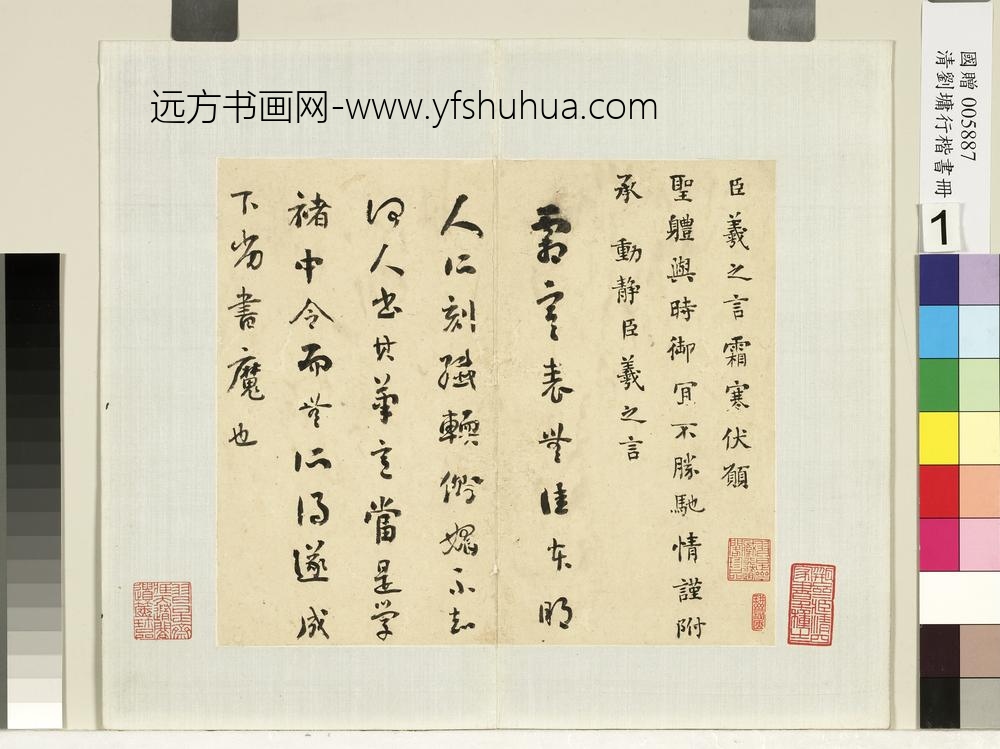 远方书画网-www.yfshuhua.com
國贈 005887
清劉墉行楷書冊
1
臣羲之言霜寒伏願
聖體與時御宜不勝馳情謹附
承 動靜臣羲之言
霜寒表無佳本明
人所刻矯媚不知
何人書其筆意當是學
褚中令而無所得遂成
下劣書魔也